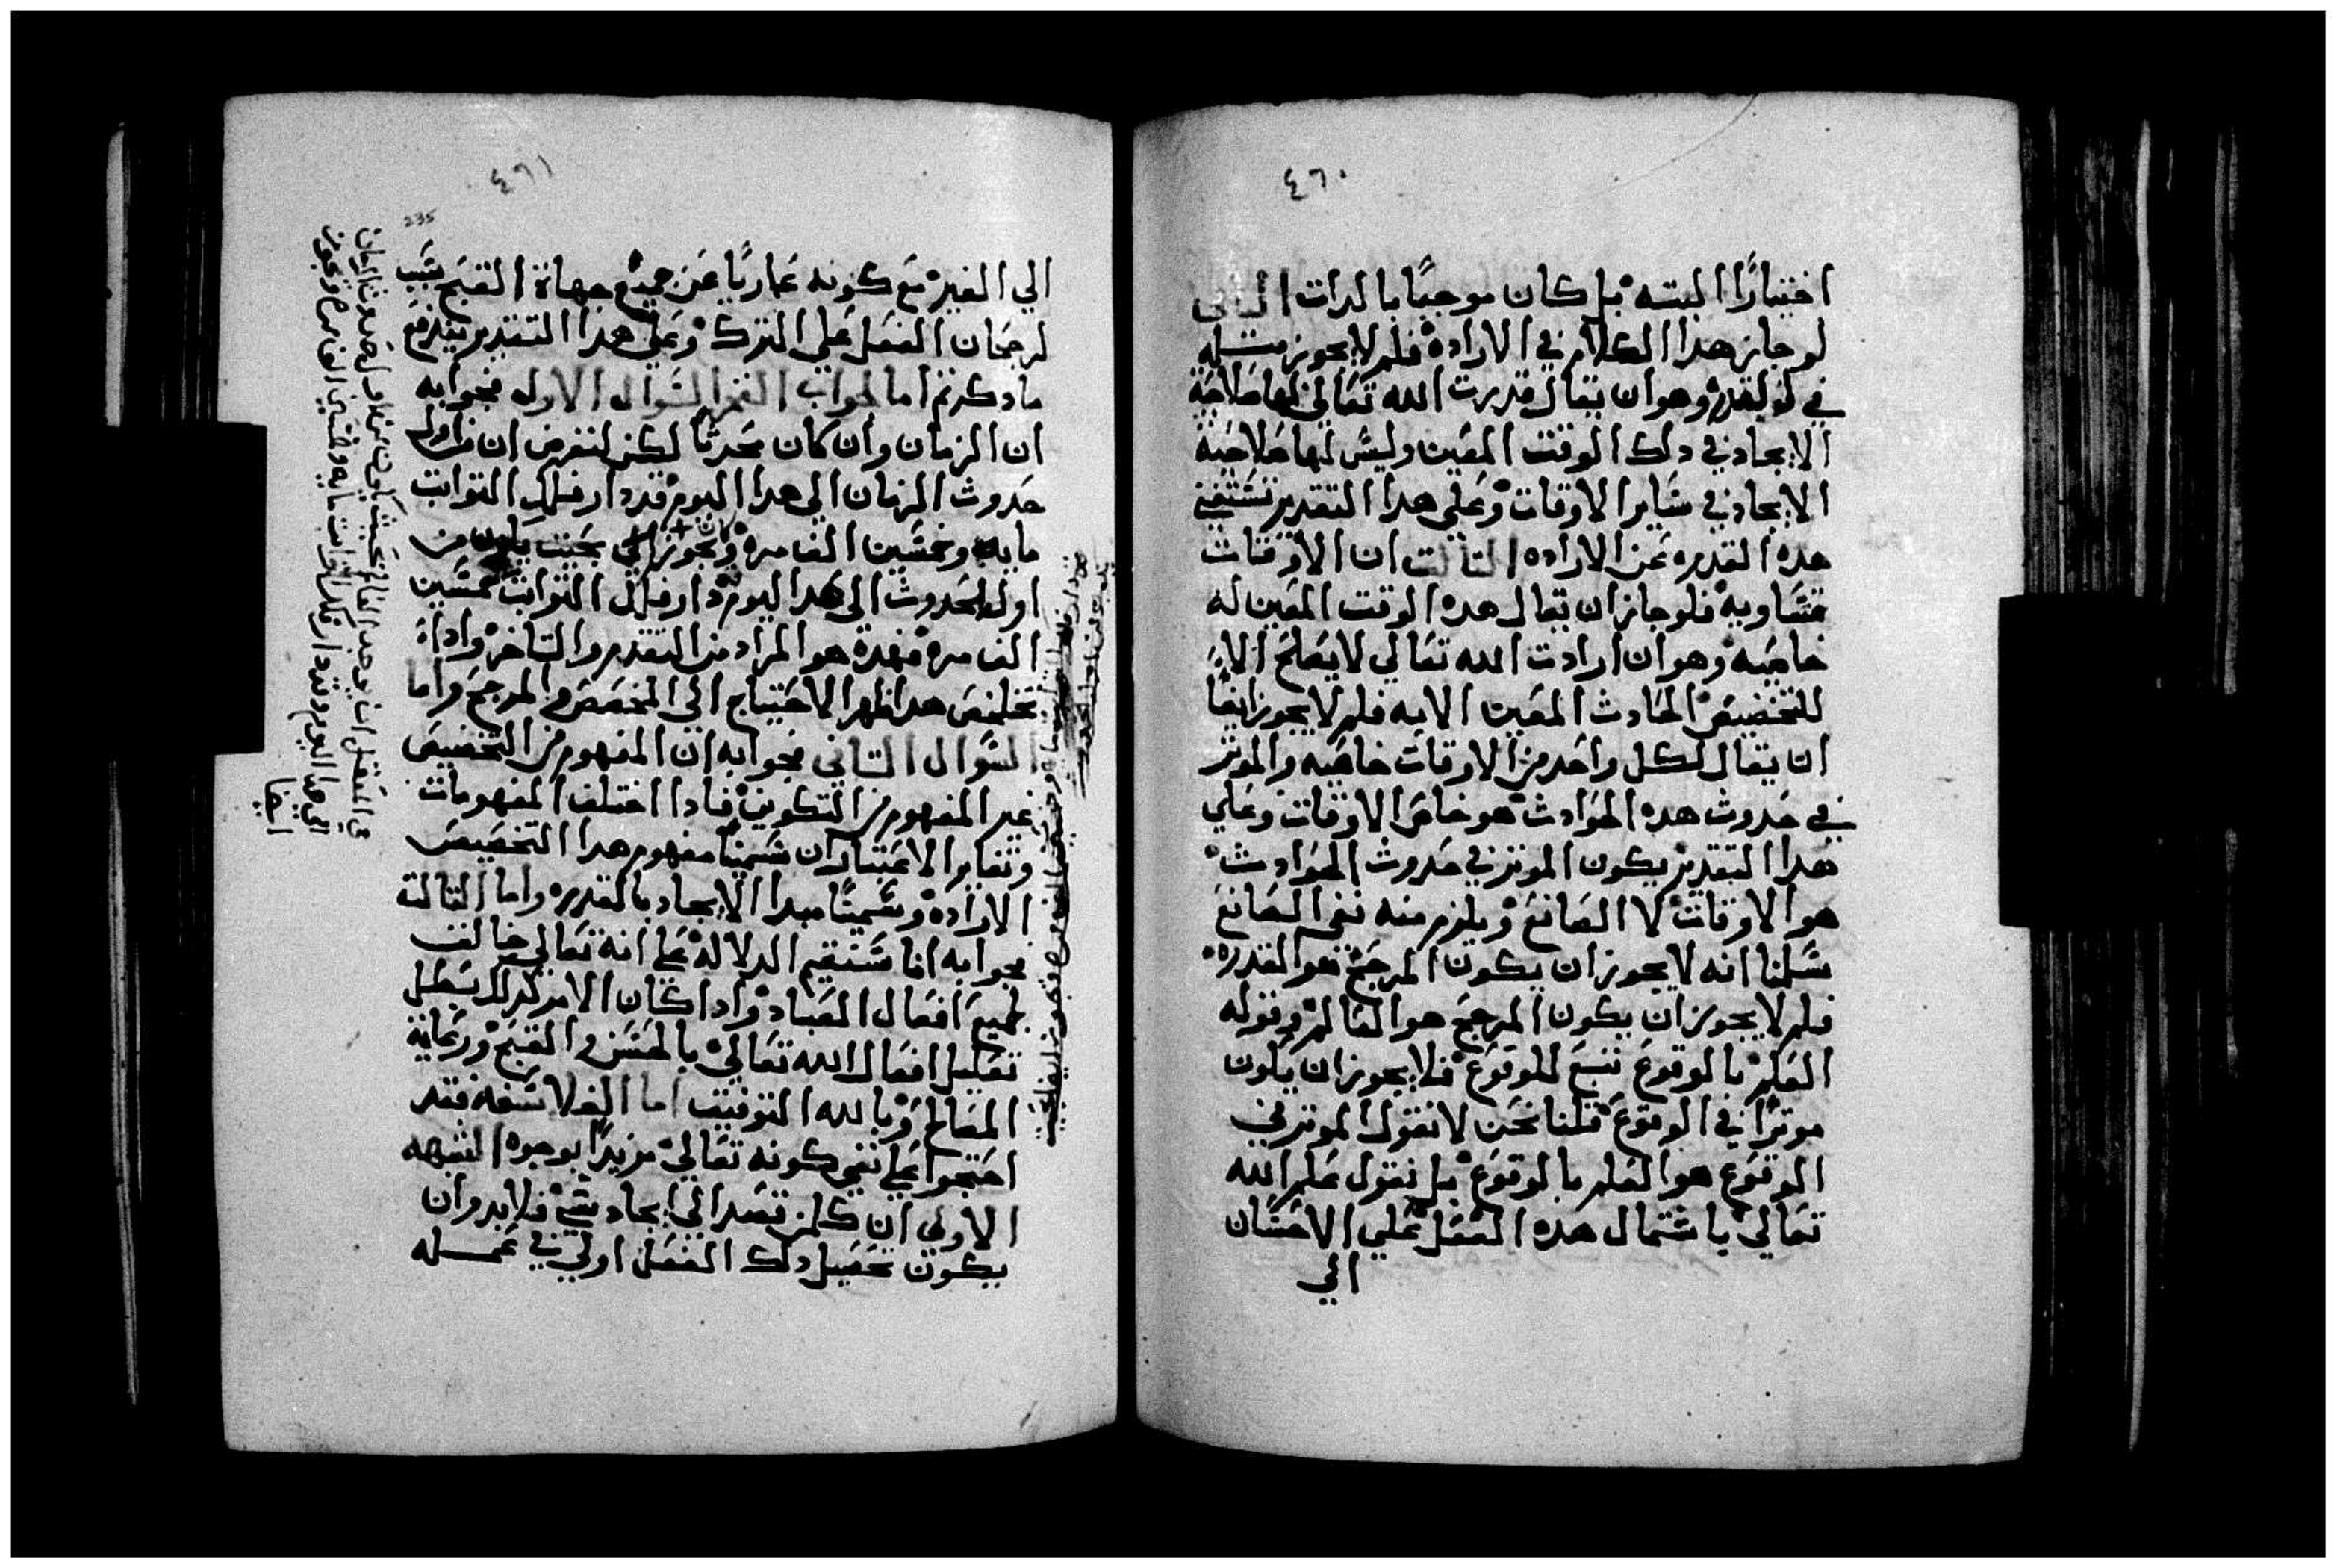 ٤٦٠
اختيارًا البته بل كان موجبًا بالدات الثاني
لو جاز هدا الكلام في الاراده فلم لا يجوز مثله
في القدره وهو ان يقال قدرت الله تعالي لها صلاحية
الايجاد في دلك الوقت المعين وليس لها صلاحية
الايجاد في ساير الاوقات وعلي هدا التقدير تستغني
هده القدره عن الاراده الثالث ان الاوقات
متساويه فلو جاز ان يقال هده الوقت المعين له
خاصيه وهو ان ارادت الله تعالي لا يصلح الا
للتخصيص الحادث المعين الا به فلم لا يجوز ايضًا
ان يقال لكل واحد من الاوقات خاصيه والموثر
في حدوث هده الحوادث هو خاص الاوقات وعلي
هدا التقدير يكون الموثر في حدوث الحوادث
هو الاوقات لا الصانع ويلزم منه نفي الصانع
سلمنا انه لا يجوز ان يكون المرجح هو القدره
فلم لا يجوز ان يكون المرجح هو العالم وقوله
العلم بالوقوع تبع للوقوع فلا يجوز ان يكون
موثرًا في الوقوع قلنا نحن لا نقول الموثر في
الوقوع هو العلم بالوقوع بل نقول علم الله
تعالي باشتمال هده الفعل علي الاحسان
الي
٤٦١
235
الي الغير مع كونه عاريًا عن جميع جهاة القبح سبب
لرجحان الفعل علي الترك وعلي هدا التقدير يندفع
ما دكرتم اما الجواب السوال الاول فجوابه
ان الزمان وان كان محدثًا لكن لنفرض ان من اول
حدوث الزمان الي هدا اليوم قد دار فلك الثوابت
مايه وخمسين الف مره ويجوز بحيث يكون من
اول الحدوث الي هدا اليوم دار فلك الثوابت خمسين
الف مره فهده هو المراد من التقدم والتاخر وادا
تخلص هدا ظهر الاحتياج الي المخصص والمرجح واما
السوال الثاني فجوابه ان المفهوم من التخصيص
غير المفهوم من التكوين فادا اختلف المفهومات
وتغاير الاعتباران سمينا مفهوم هدا التخصيص
الاراده وسمينا مبدا الايجاد بالقدره واما الثالث
فجوابه انا سنقيم الدلاله علي انه تعالي خالق
لجميع افعال العباد وادا كان الامر كدلك بطل
تعليل افعال الله تعالي بالحسن والقبح ورعاية
المصالح وبالله التوفيق اما الفلاسفه فقد
احتجوا علي نفي كونه تعالي مريدًا بوجوه الشبهه
الاولي ان كل من قصد الي ايجاد شي فلا بد وان
يكون تحصيل دلك الفعل اولي في عمله